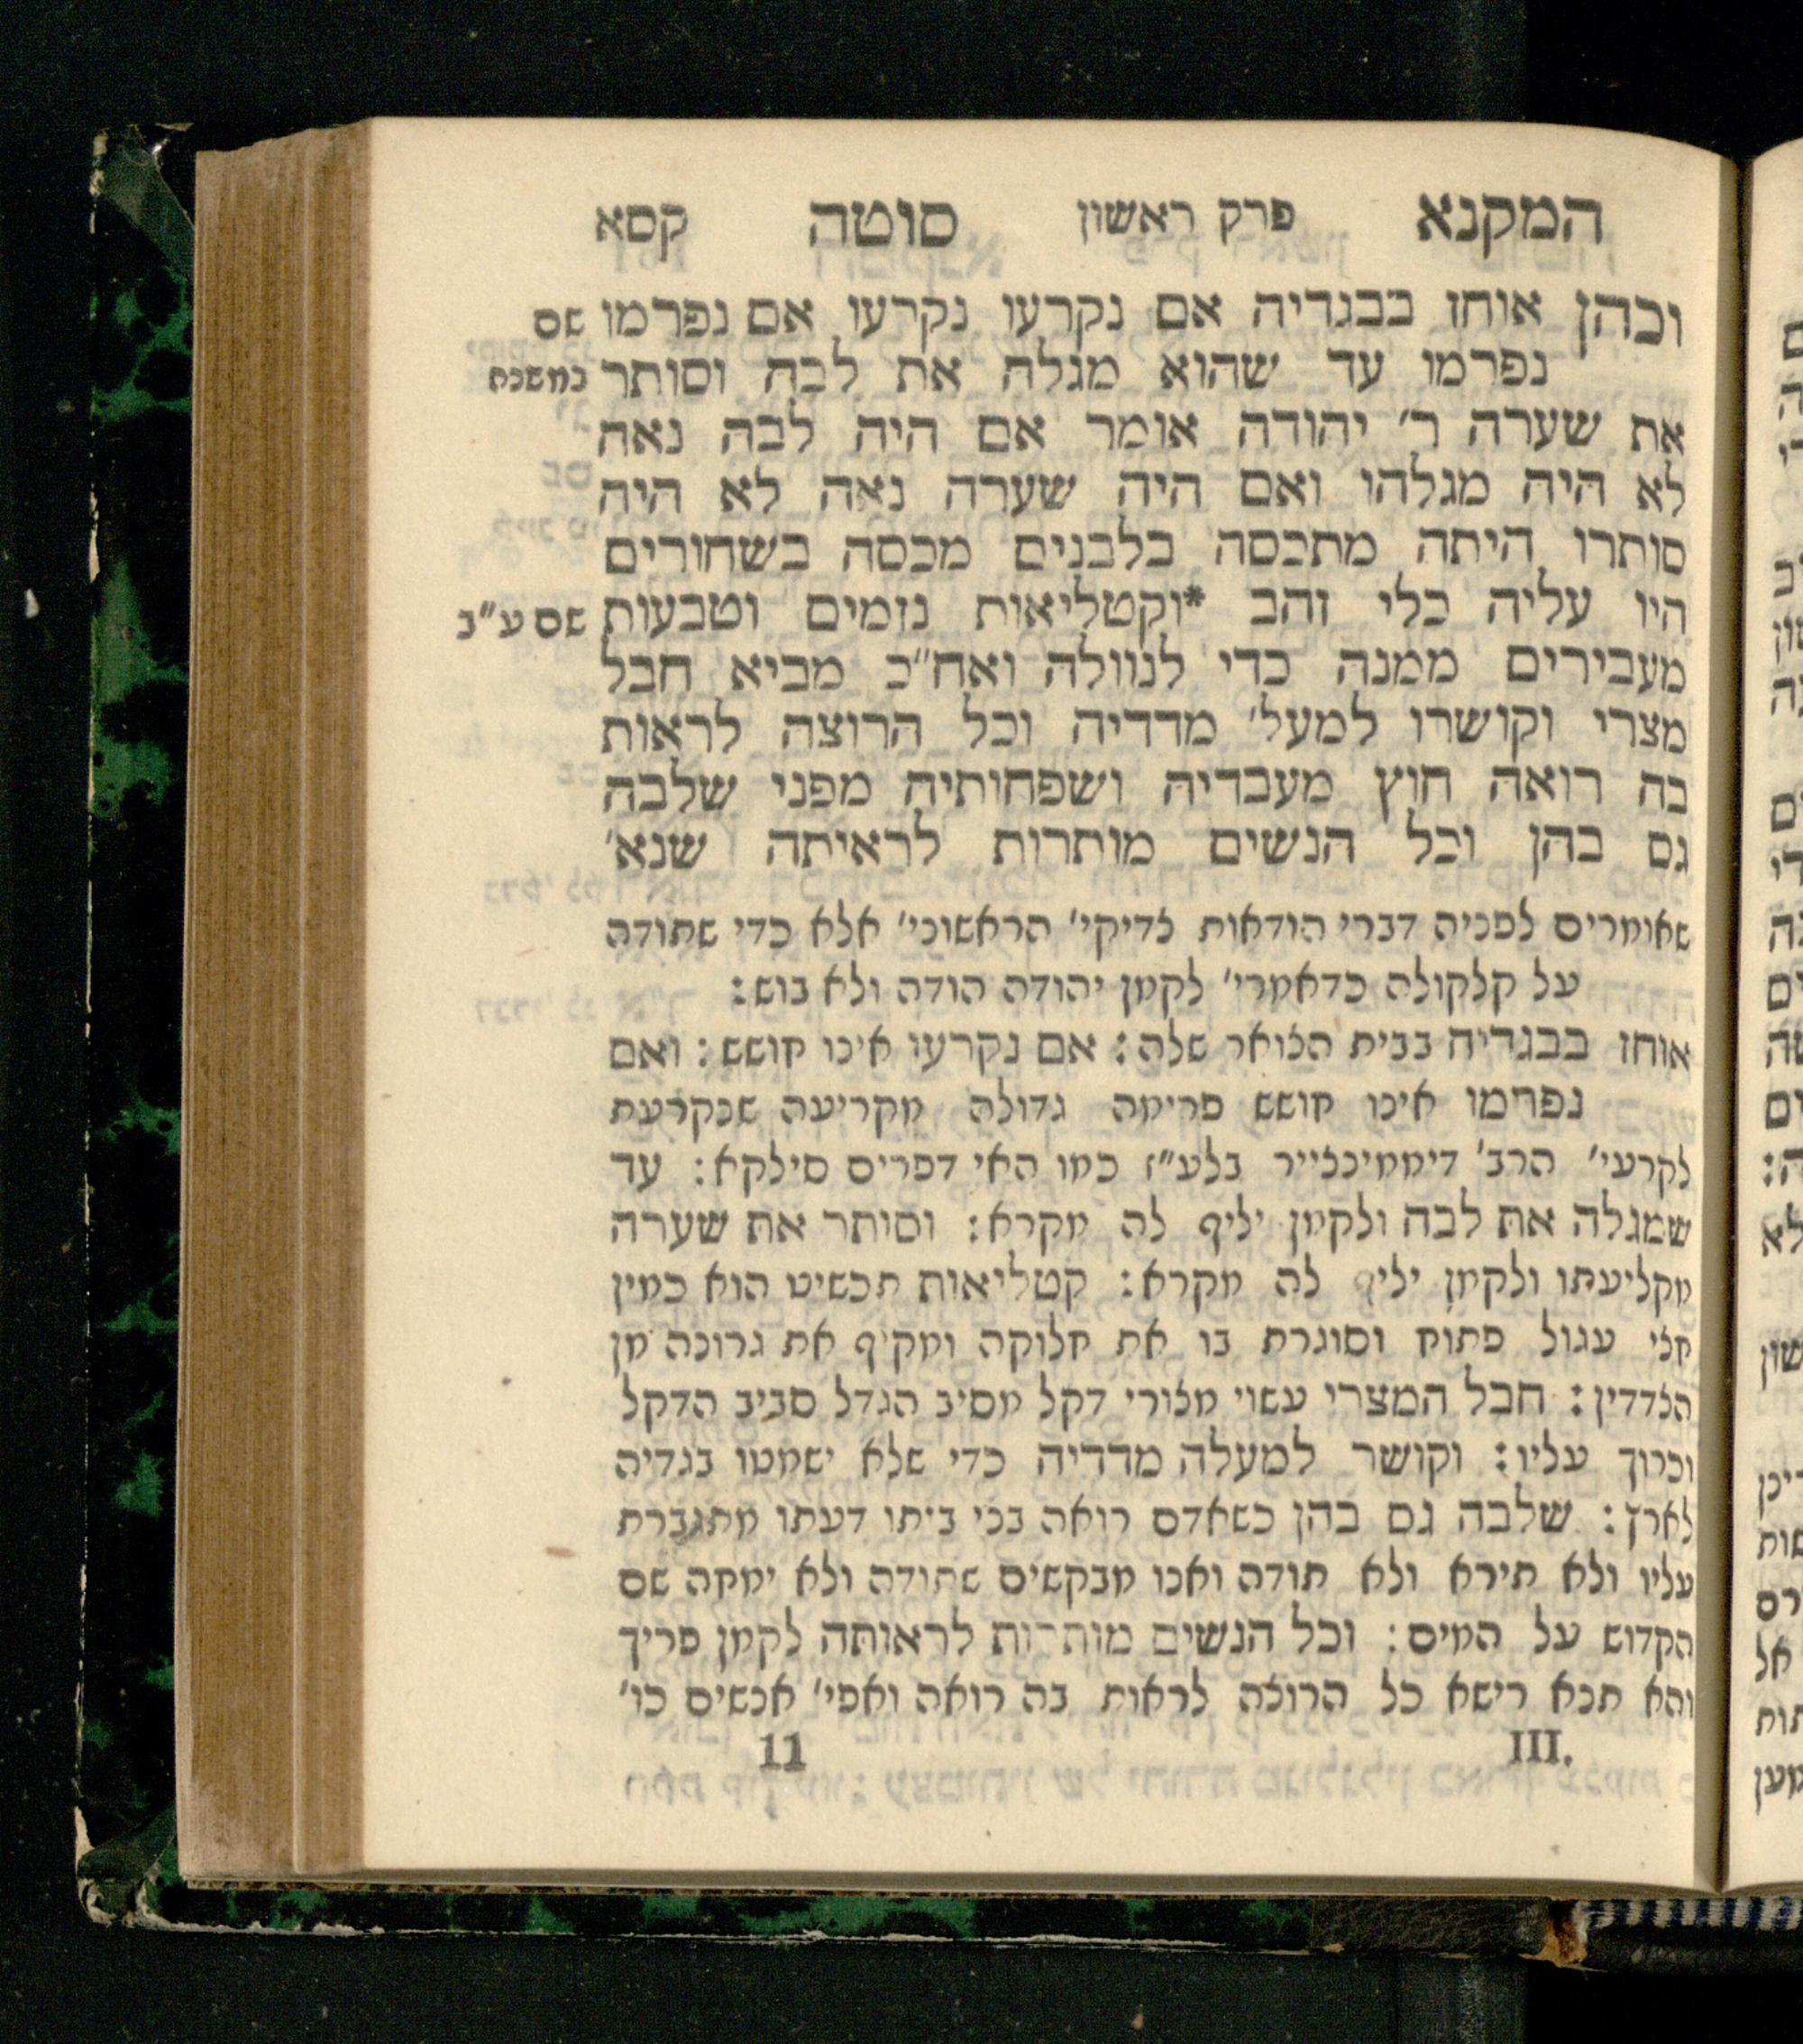 המקנא פרק ראשון סוטה קסא
וכהן אוחז בבגדיה אם נקרעו נקרעו אם נפרמו שם
נפרמו עד שהוא מגלה את לבה וסותר במשנה
את שערה ר׳ יהודה אומר אם היה לבה נאה
לא היה מגלהו ואם היה שערה נאה לא היה
סותרו היתה מתכסה בלבנים מכסה בשחורים
היו עליה כלי זהב *וקטליאות נזמים וטבעות שם ע״ב
מעבירים ממנה כדי לנוולה ואח״כ מביא חבל
מצרי וקושרו למעל׳ מדדיה וכל הרוצה לראות
בה רואה חוץ מעבדיה ושפחותיה מפני שלבה
גם בהן וכל הנשים מותרות לראיתה שנא׳
שאומרים לפניה דברי הודאות צדיקי׳ הראשוני׳ אלא כדי שתודה
על קלקולה כדאמרי׳ לקמן יהודה הודה ולא בוש:
אוחז בבגדיה בבית הצואר שלה: אם נקרעו אינו חושש: ואם
נפרמו אינו חושש פרימה גדולה מקריעה שנקרעת
לקרעי׳ הרב׳ דיממיכלייר בלע״ז כמו האי דפרים סילקא: עד
שמגלה את לבה ולקמן יליף לה מקרא: וסותר את שערה
מקליעתו ולקמן יליף לה מקרא: קטליאות תכשיט הוא כמין
חלי עגול פתוח וסוגרת בו את חלוקה ומקיף את גרונה מן
הצדדין: חבל המצרי עשוי מצורי דקל מסיב הגדל סביב הדקל
וכרוך עליו: וקושר למעלה מדדיה כדי שלא ישמטו בגדיה
לארץ: שלבה גם בהן כשאדם רואה בני ביתו דעתו מתגברת
עליו ולא תירא ולא תודה ואנו מבקשים שתודה ולא ימחה שם
הקדוש על המים: וכל הנשים מותרות לראותה לקמן פריך
והא תנא רישא כל הרוצה לראות בה רואה ואפי׳ אנשים כו׳
III. 11